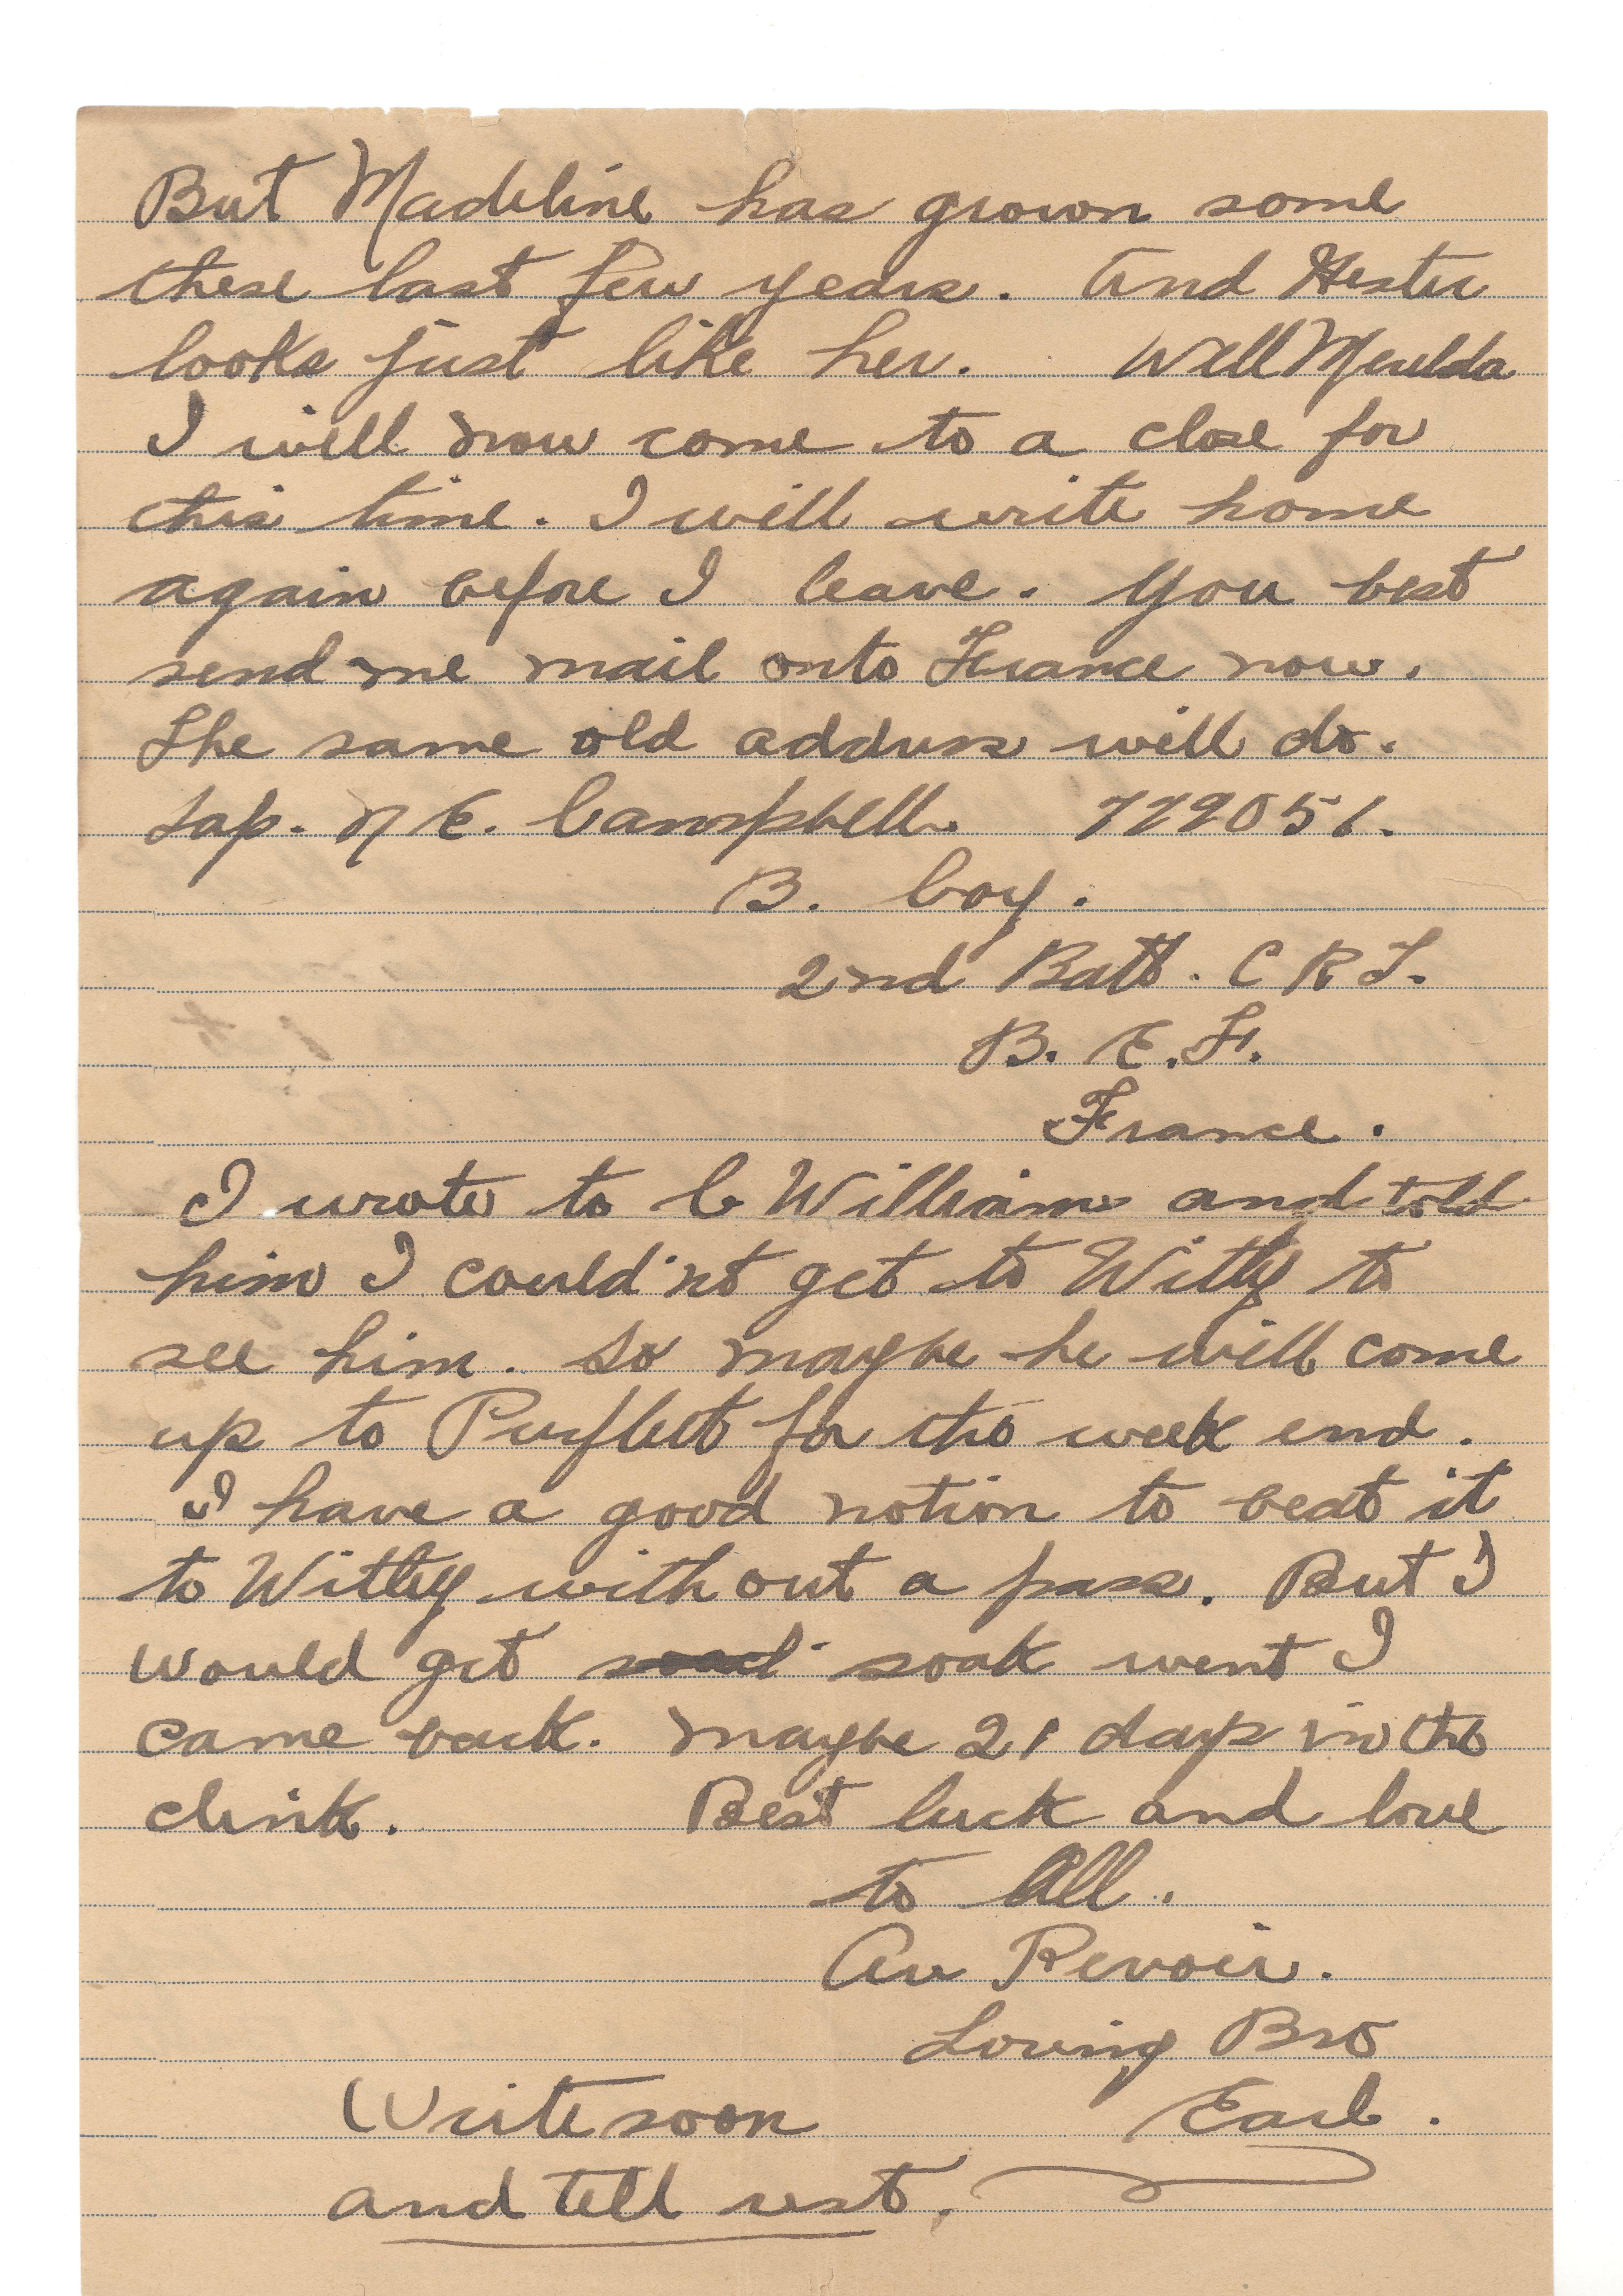 But Madeline has grown some
these last few years. And Hester
looks just like her. Well Merelda
I will now come to a close for
this time. I will write home
again before I leave. You best
send me mail onto France now.
The same old address will do.
Sap. N E. Campbell. 779051.
B. Coy.
2nd Batt. C R T.
B. E. F.
France.
I wrote to C William and told
him I could'nt get to Witly to
see him. So maybe he will come
up to Purfleet for the week end.
I have a good notion to beat it
to Witley with out a pass. But I
would get soak went I
came back. maybe 21 days in the
clink. Best luck and love
to All.
Au Revoir.
Loving Bro
Write soon Earl.
and tell rest.